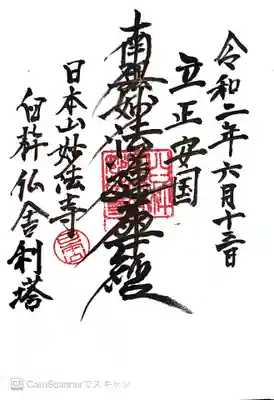 令和二年六月十三日
立正安国
南無妙法蓮華経
日本山妙法寺
臼杵仏舎利塔
CamScannerでスキャン